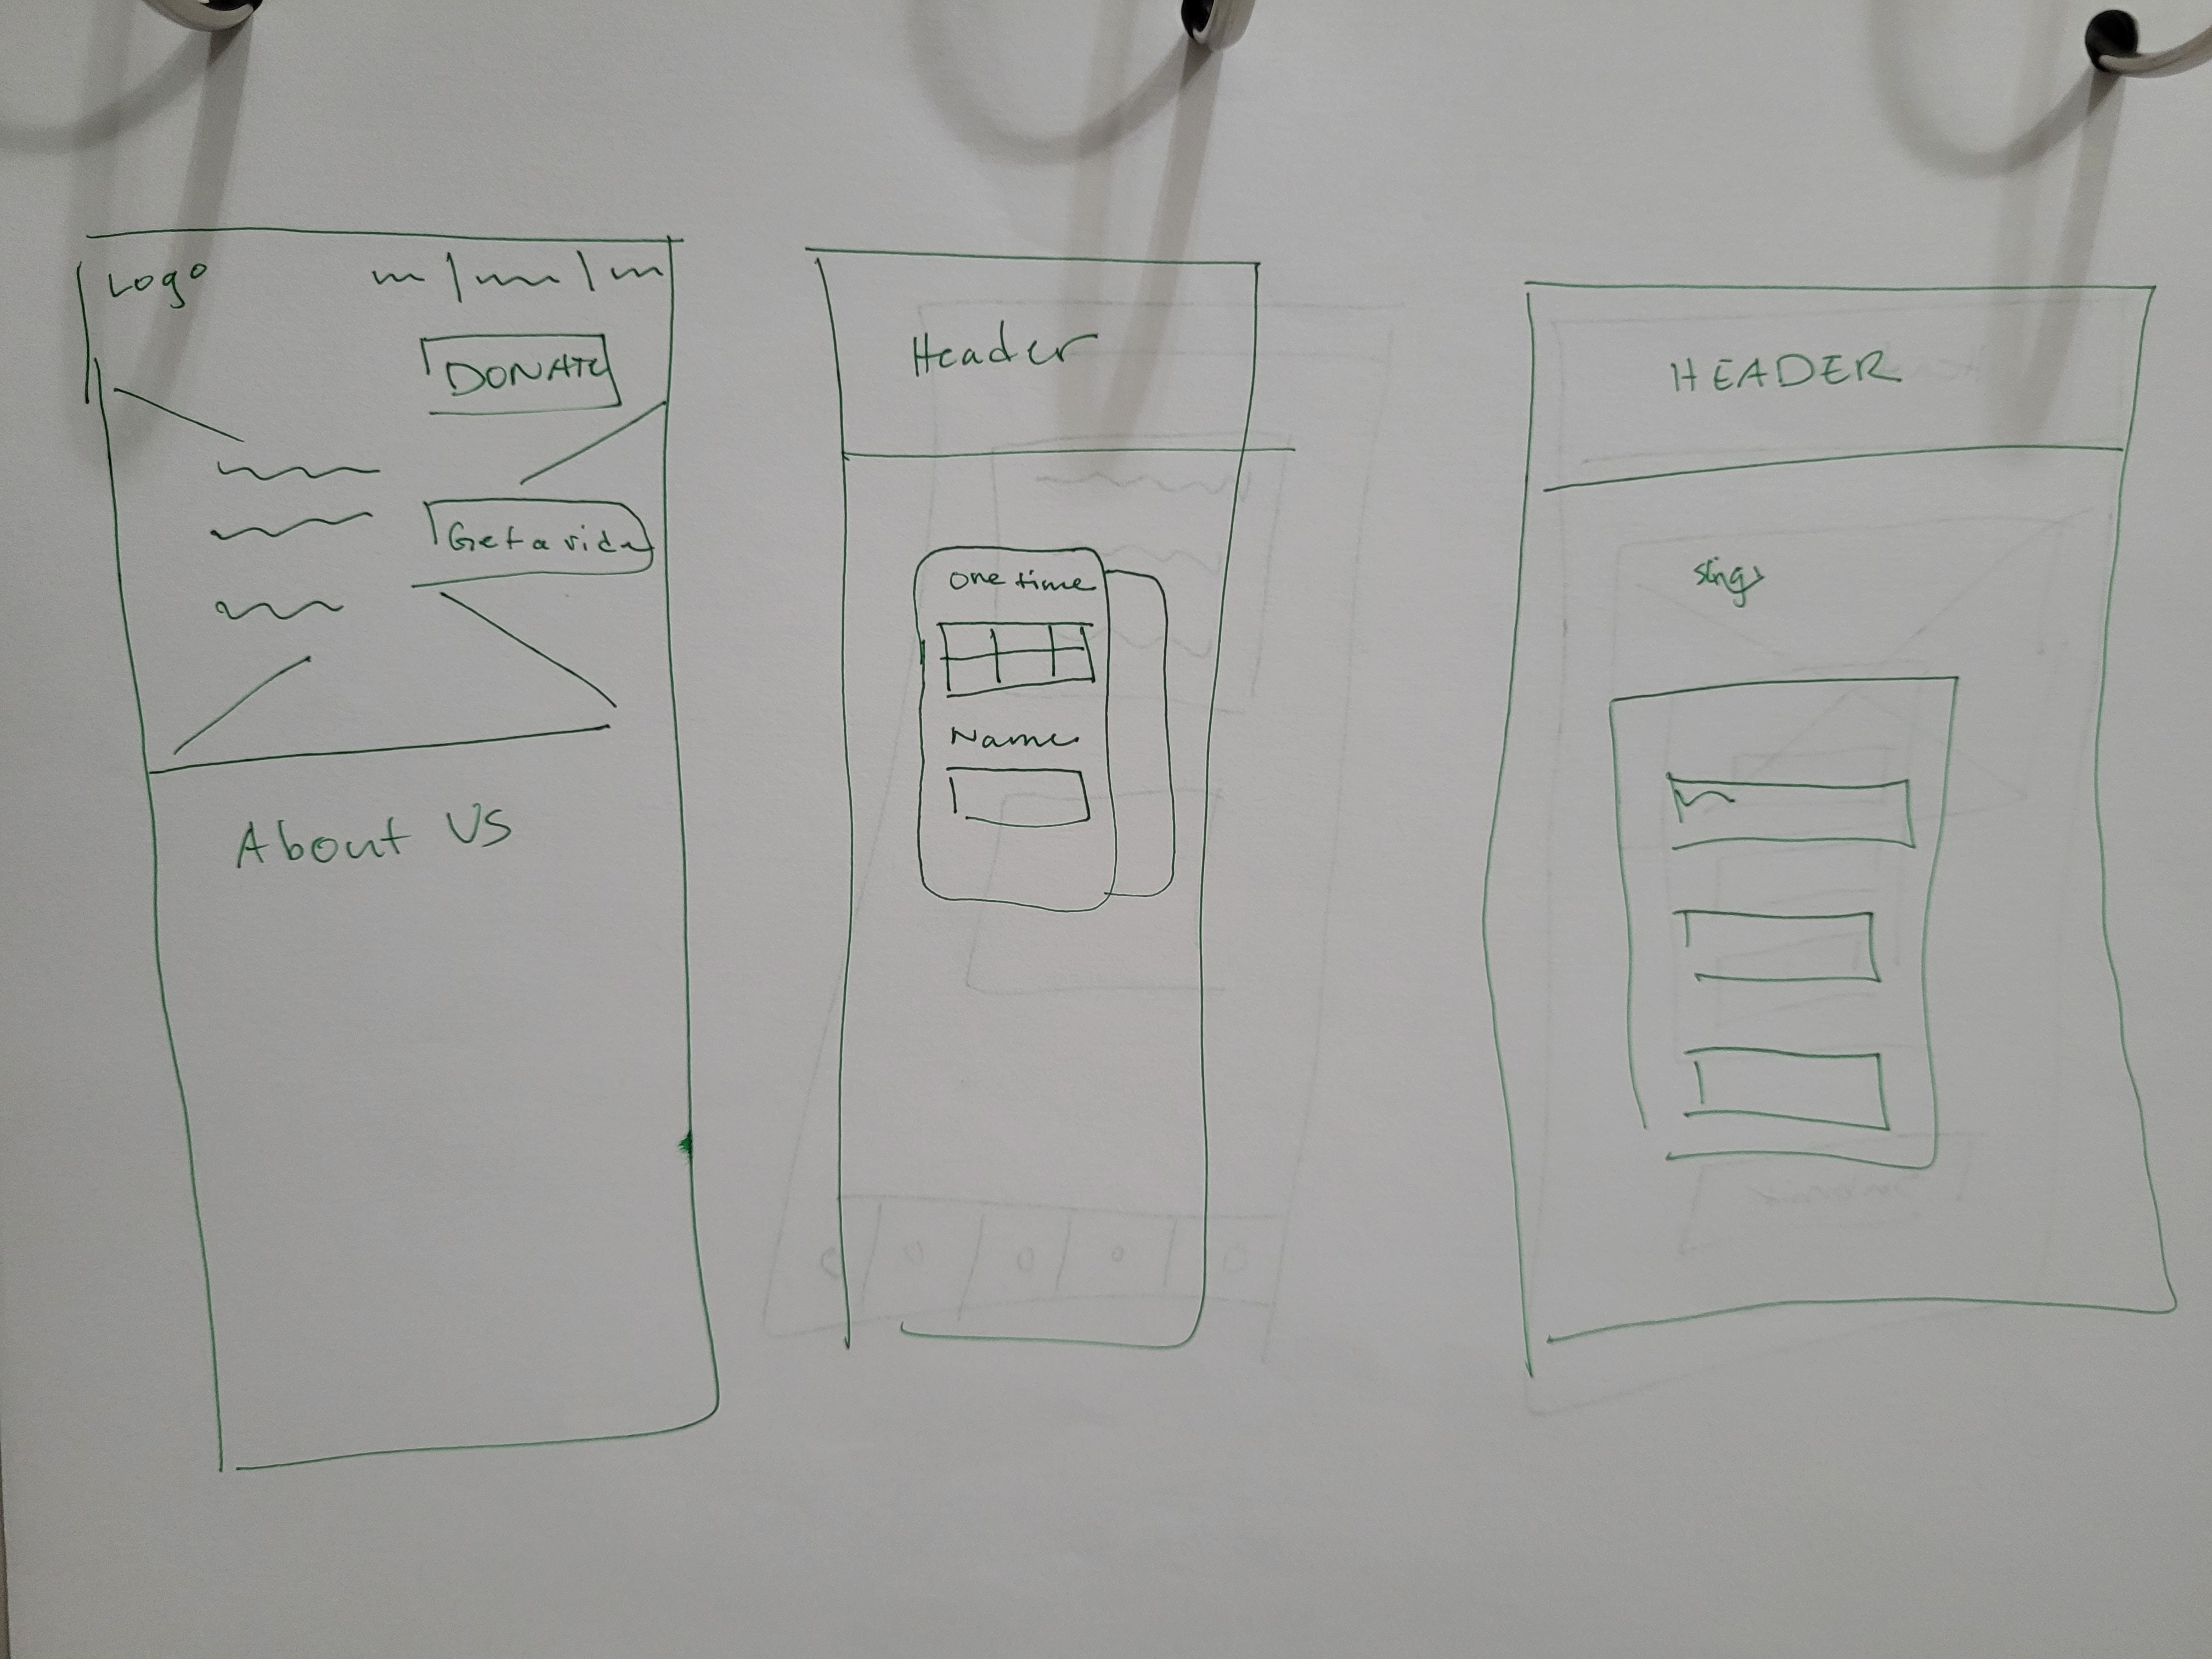 Logo
DONATE
Get a ride
About US
Header
One time
Name
HEADER